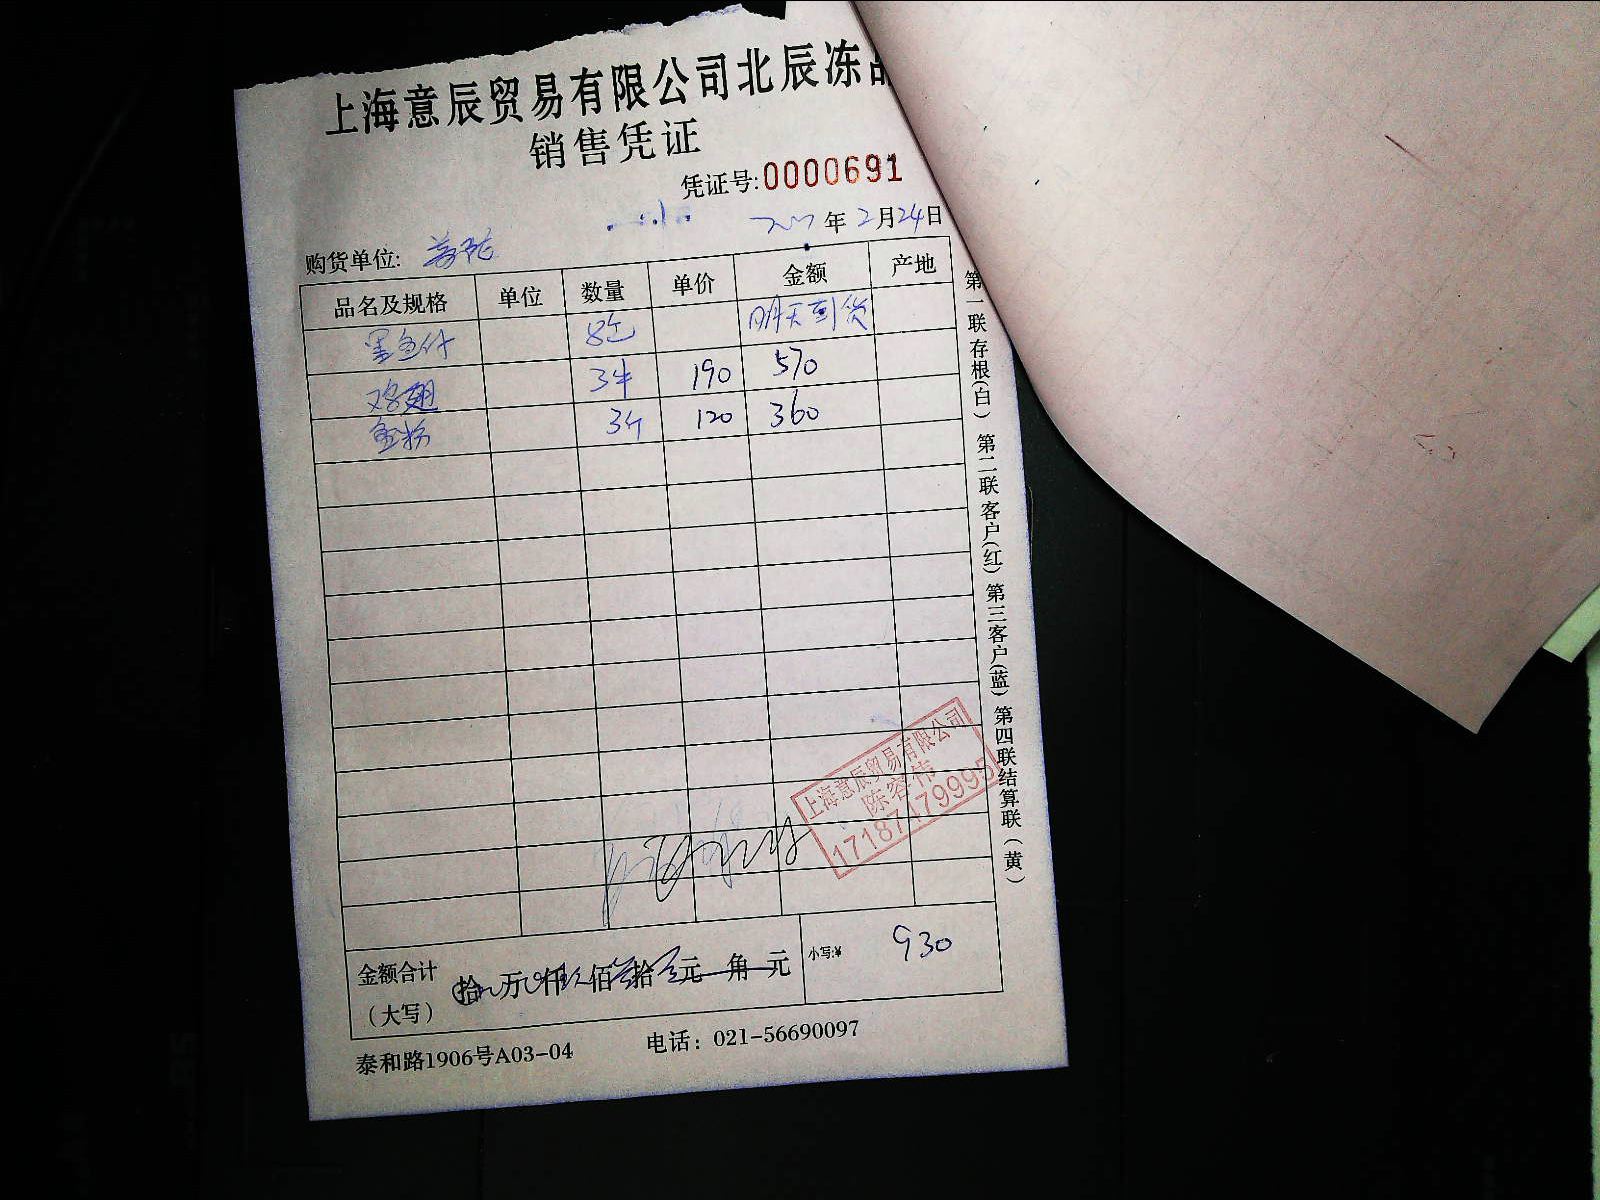 上海意辰贸易有限公司北辰冻品
销售凭证
凭证号:0000691
年2月24日
购货单位:
品名及规格 单位 数量 单价 金额 产地
墨鱼仔 8包 明天到货
鸡翅 3件 190 570
鱼粉 3个 120 360
第一联存根(白) 第二联客户(红) 第三客户(蓝) 第四联结算联(黄)
上海意辰贸易有限公司
陈容伟
17187479995
金额合计(大写) 拾 万 仟 佰 拾 元 角 元 小写:¥ 930
泰和路1906号A03-04 电话:021-56690097